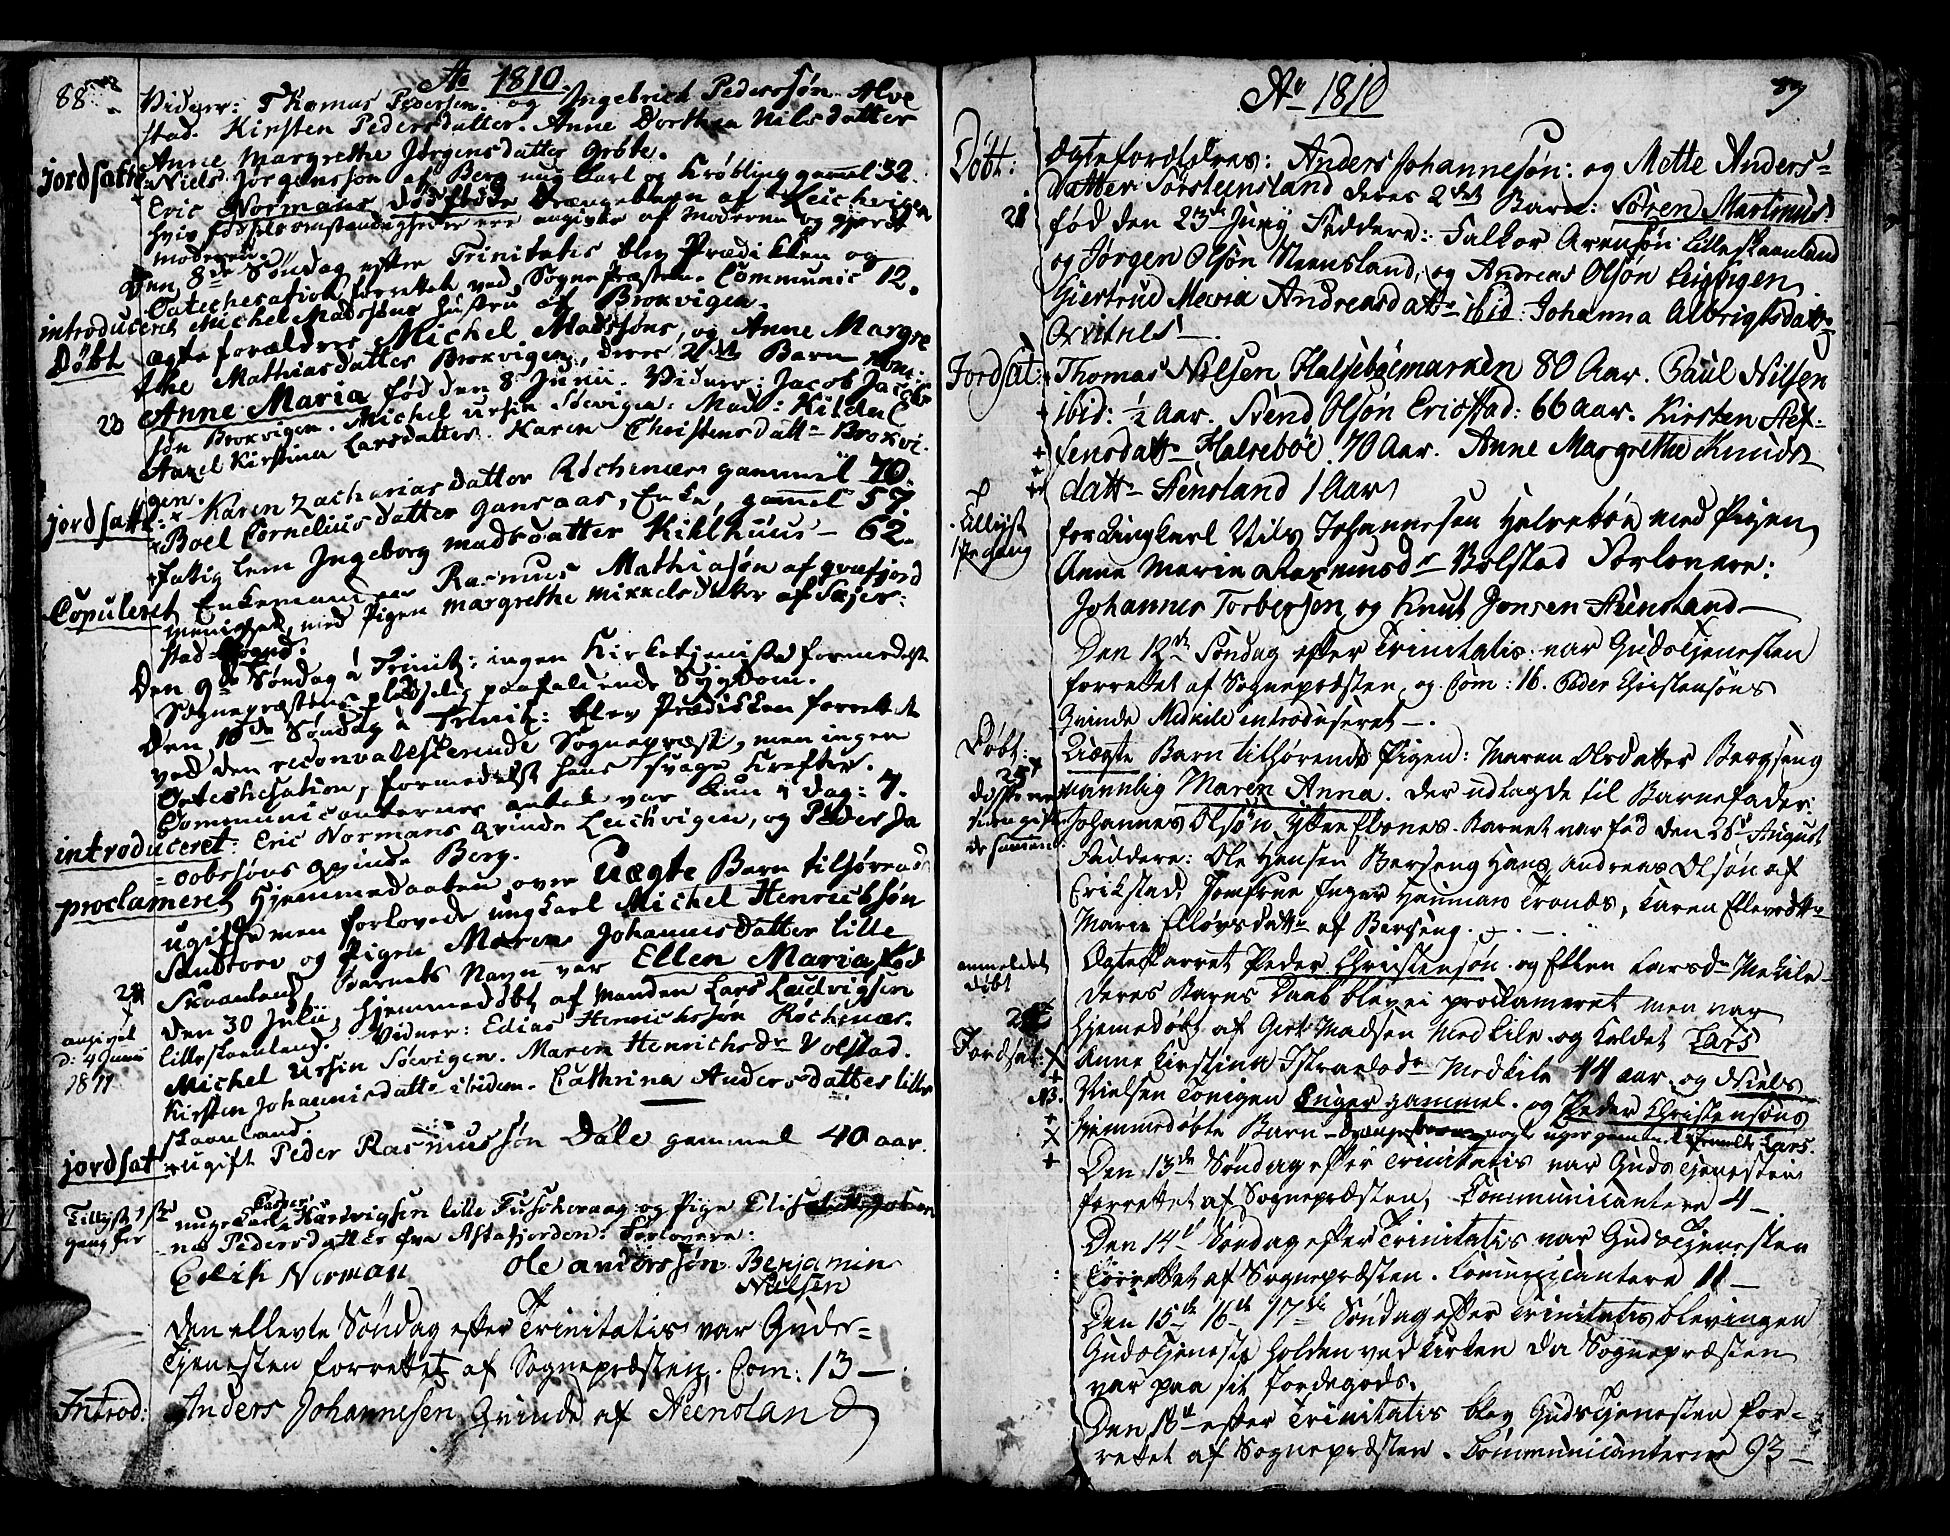 88
Ao 1810.
Vidner: Thomas Pedersen. og Ingebrict Pederssøn Alve
stad. Kirsten Pedersdatter. Anne Dorthea Nilsdatter
Anne Margrethe Jørgensdatter Grøte.
jordsatte Niels Jørgenssøn af Berg ung Karl og Krøbling gaml 32.
Eric Normans dødfødte Drængebarn af Leichvigen
hvis fødsels omstændigheder ere angivne af Moderen og gjorde
moderen.
Den 8de Søndag efter Trinitatis blev Prædikken og
Catechesation forrettet ved Sognepræsten. Communic 12.
introduceret Michel Madssøns Hustru af Brokvigen.
Døbt ægteforældres Michel Madssøns, og Anne Margre
the Mathiasdatter Brokvigen, deres 2det Barn
Anne Maria fød den 8 Junii. Vidner: Jacob Jacob
23 søn Brokvigen. Michel Ursin Søevigen. Mad: Kildal
Aaxel Kirstina Larsdatter. Karen Christensdattr Brokvi
gen.
jordsatte: Karen Zacharias datter Røchenæs gammel 70.
Boel Cornelius datter Gansaas, Enke, gammel 57.
fattig lem Ingeborg madsdatter Kihlhuus 62.
Copuleret Enkemanden Rasmus Mathiasøn af Grafjord
menighet, med Pigen Margrethe Mikkelsdatter af
stad Sogn.
Den 9de Søndag a Trinit: ingen Kirketjeniste formedelst
Sognepræstens pludselig paafaldende Sygdom.
Den 10de Søndag a Trinit: blev Prædikken forrettet
ved den reconvalescerende Sognepræst, men ingen
Catechesation, formedelst hans svage Kræfter.
Communicanternes antal var kun i dag: 7.
introduceret: Eric Normans Qvinde Leichvigen, og Peder Ja
cobssøns Qvinde Berg.
proclameret Hjemmedaaben over Uægte Barn tilhørende
ugifte men forlovede ungkarl Michel Henrichsøn
Sandtorv og Pigen Maren Johannisdatter Lille
Skaanland, Barnets Navn var Ellen Maria fød
24 den 30 Julii, hjemmedøbt af Manden Lars Ludvigsen
angivet
d: 4 Junii
1811
lilleskaanland. Vidner: Elias Henrichssøn Røchenæs.
Michel Ursin Søevigen. Maren Henrichsdr Volstad.
Kirsten Johannisdatter ibidem. Cathrina Andersdatter lille
skaanland.
jordsat ugift Peder Rasmussøn Dale gammel 40 aar.
Tillyst 1ste
gang for
unge Karl Hartvigsen lille Fuskevaag og Pige
na Pedersdatter fra Astafjorden: Forlovere:
Erik Norman Ole anderssøn Benjamin
Nielsen
Den ellevte Søndag efter Trinitatis var Guds-
Tjenesten forrettet af Sognepræsten. Com: 13 —
Introd: Anders Johannesen Qvinde af Steensland
Ao 1810
89
Døbt: ægteforældres: Anders Johannesøn: og Mette Anders=
datter Steensland deres 2det Barn: Søren Martinus
21 fød den 23de Junij Faddere: Falkor Arensøn Lilleskaanland
og Jørgen Olsøn Steensland, og Andreas Olsøn Leivigen
Giertrud Maria Andreasdattr ibid: Johanna Albrigtsdattr
Qvitnes —
Jordsat: Thomas Nilsen Halsebøemarken 80 Aar. Paul Nilsen
ibid: ½ Aar. Svend Olsøn Ericstad: 66 aar. Kirsten Stef-
fensdattr Halsebøe 70 Aar. Anne Margrethe Knuds
dattr Stensland 1 Aar
Tillyst
1ste Gang for Ungkarl Nils Johannesen Halsebøe med Pigen
Anne Marie Rasmusdr Volstad Forlovere:
Johannes Torbersen og Knut Jonsen Steensland —
Den 12te Søndag efter Trinitatis var Gudstjenesten
forrettet af Sognepræsten og Com: 16. Peder Christensøns
Qvinde Medkile introduseret —.
Døbt: Uægte Barn tilhørende Pigen: Maren Olsdatter Bergseng
navnlig Maren Anna. Der udlagde til Barnefader
Johannes Olsøn Yttre Elgsnes. Barnet var fød den 26de August
Faddere: Ole Hansen Berseng Hans Andreas Olsøn af
Erikstad, Jomfrue Inger Heitman Trones, Karen Ellevsdattr
Maren Elløvsdattr af Berseng.
anmeldet
døbt Ægteparret Peder Christensøn og Ellen Larsdr Medkile
deres Barns Daab blev ei proclameret men var
hjemedøbt af Gert Madsen Medkile og kaldet Lars
Jordsat Anne Kirstina Istraelsdr Medkile 44 aar og Niels
NB. Nielsen Tonigen Uger gammel. og Peder Christensøns
hjemmedøbte Barn Drængebarn gamle Lars.
Den 13de Søndag efter Trinitatis var Guds Tjenesten
forrettet af Sognepræsten, Communicantere 4 —
Den 14de Søndag efter Trinitatis var Guds Tjenesten
forrettet af Sognepræsten. Communicantere 11 —
Den 15de 16de 17de Søndag efter Trinitatis blev ingen
Gudstjeneste holden ved Kirken da Sognepræsten
var paa sit Jordegods.
Den 18de efter Trinitatis blev Gudstjenesten for-
rettet af Sognepræsten. Communicanterne 93 —